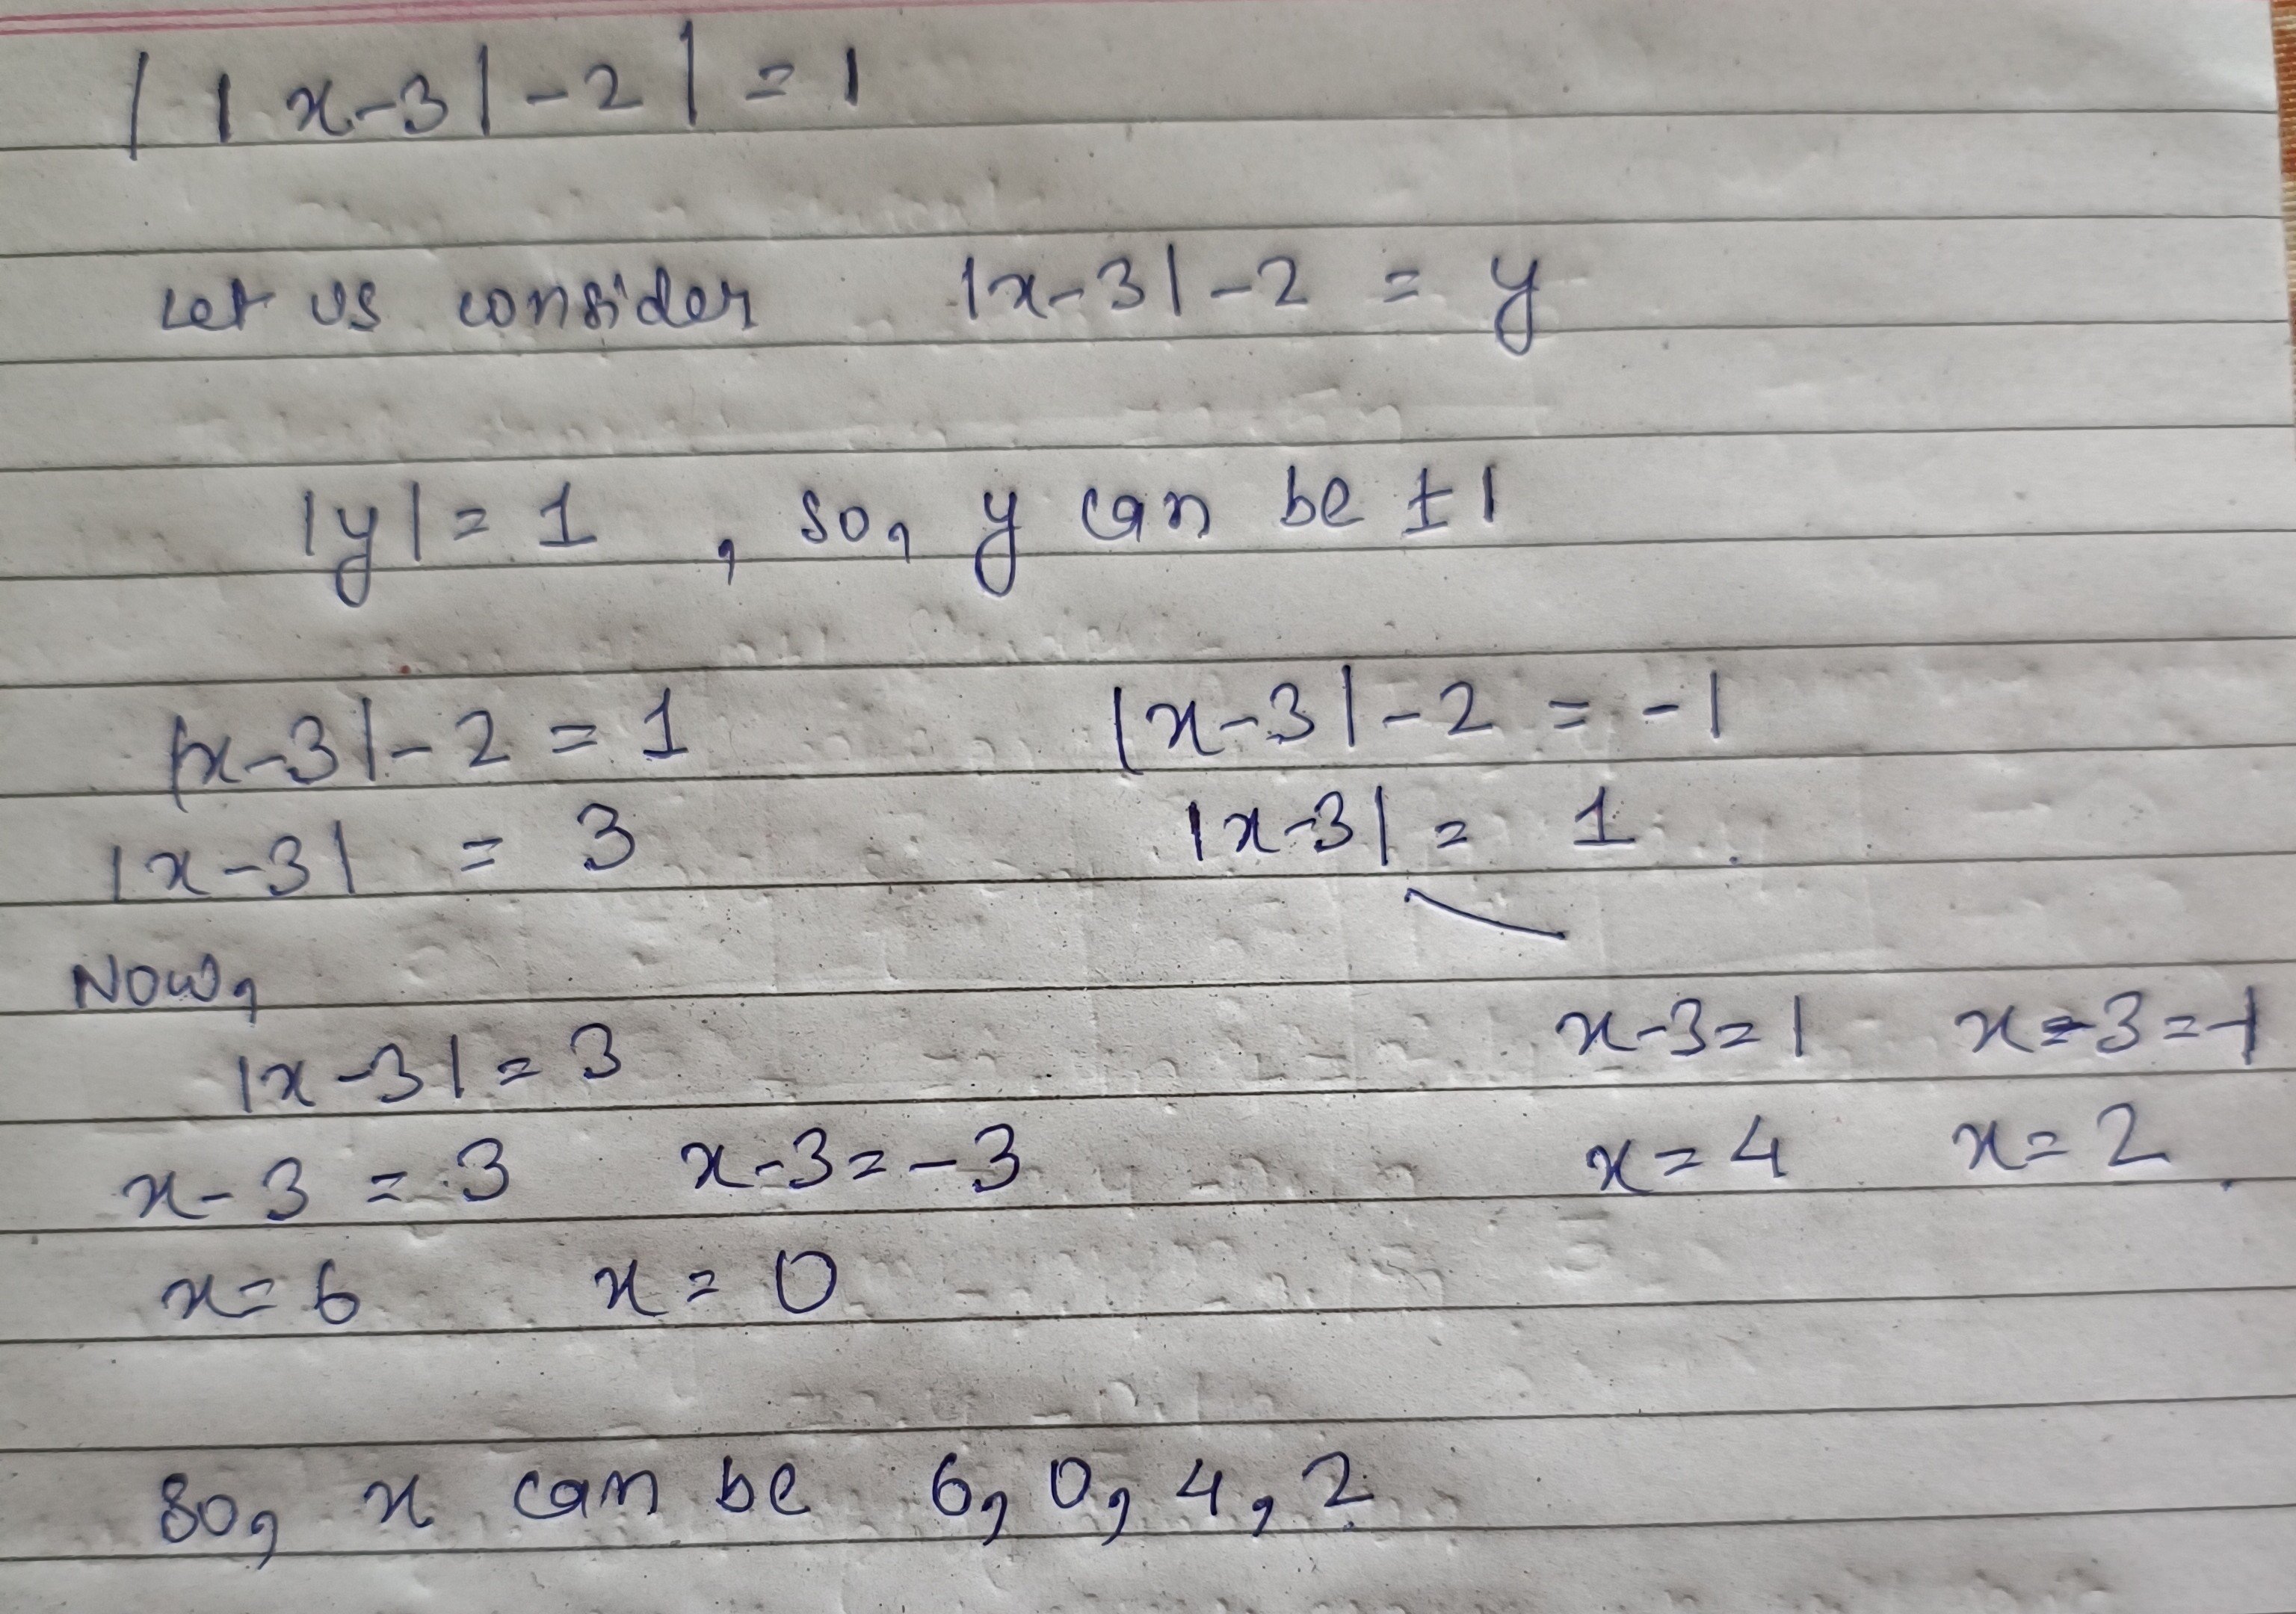 ||x-3|-2| = 1
Let us consider |x-3|-2 = y
|y| = 1 , so, y can be ±1
|x-3|-2 = 1 |x-3|-2 = -1
|x-3| = 3 |x-3| = 1
Now,
|x-3| = 3 x-3=1 x-3=-1
x-3 = 3 x-3=-3 x=4 x=2
x=6 x=0
So, x can be 6, 0, 4, 2